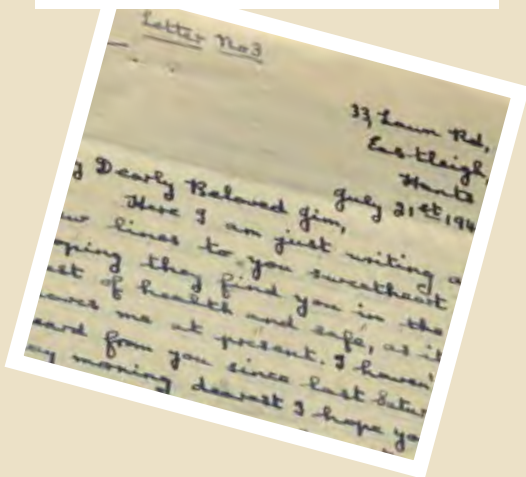 Letter No3
33, Lawn Rd,
Eastleigh,
Hants
July 21st, 194
y Dearly Beloved Jim,
Here I am just writing a
ew lines to you sweetheart
oping they find you in the
est of health and safe, as it
eaves me at present. I haven'
eard from you since last Satur
ay morning dearest I hope yo